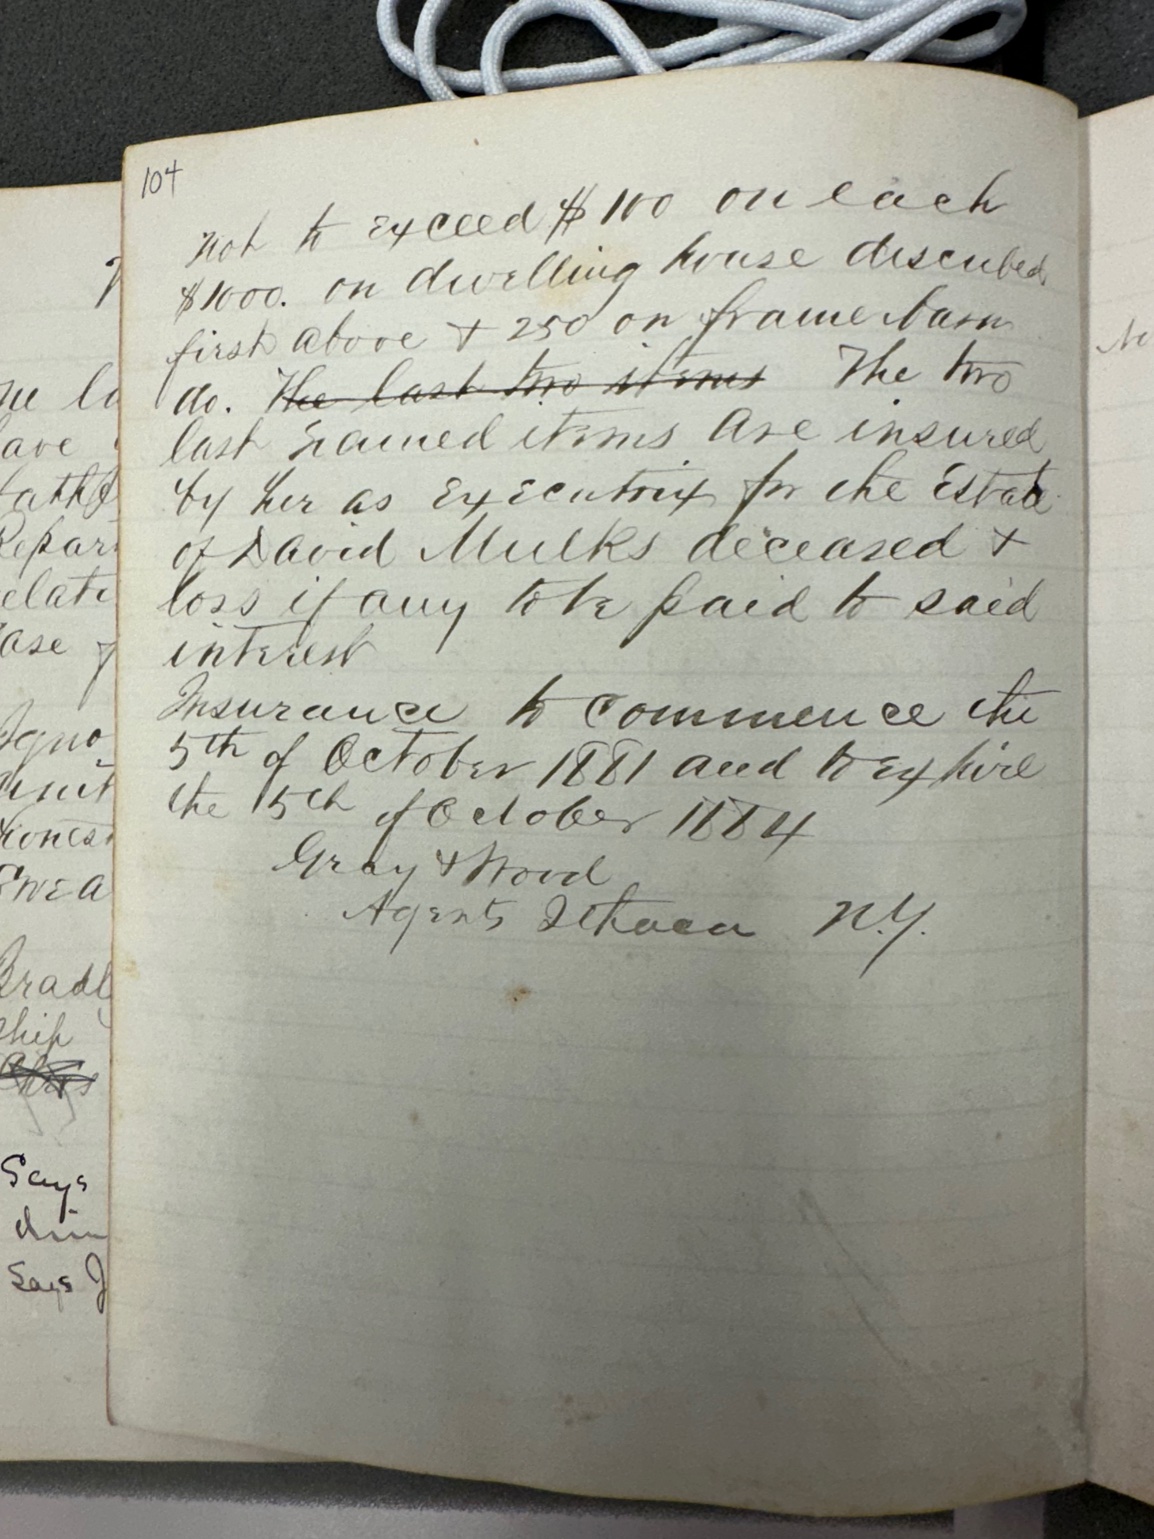 104
Not to exceed $100 on each
$1000. on dwelling house described
first above + 250 on frame barn
do. The last two items The two
last named items are insured
by her as Executrix for the Estate
of David Mulks deceased +
loss if any to be paid to said
interest
Insurance to commence the
5th of October 1881 and to expire
the 5th of October 1884
Gray + Wood
Agents Ithaca N.Y.
ave
Repair
elati
ase
hones
Bradl
ship
Says
Says J